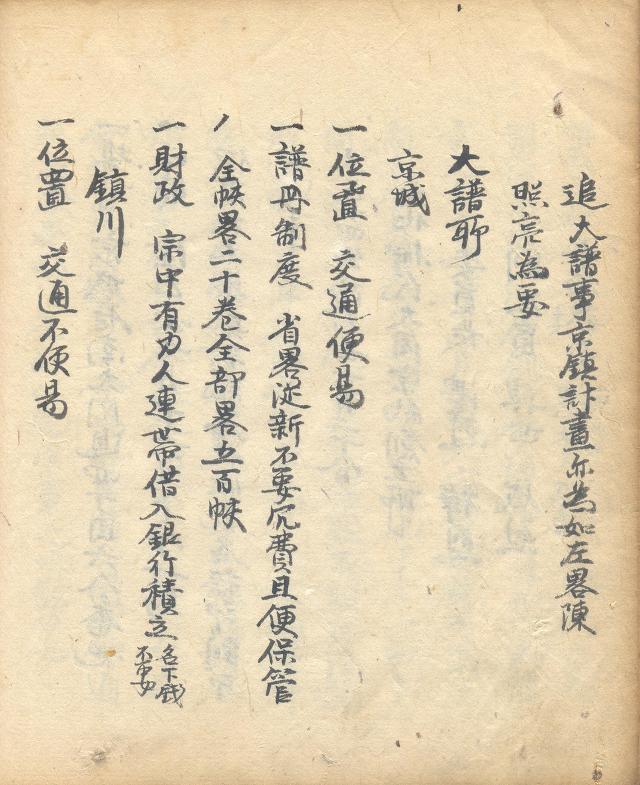 追 大譜事京鎮計畫亦為如左畧陳
照亮為要
大譜所
京城
一 位置 交通便易
一 譜冊制度 省畧從新不要冗費且便保管
ノ 全帙畧二十卷全部畧五百帙
一 財政 宗中有力人連帶借入銀行積立 名下錢
不要
鎮川
一 位置 交通不便易